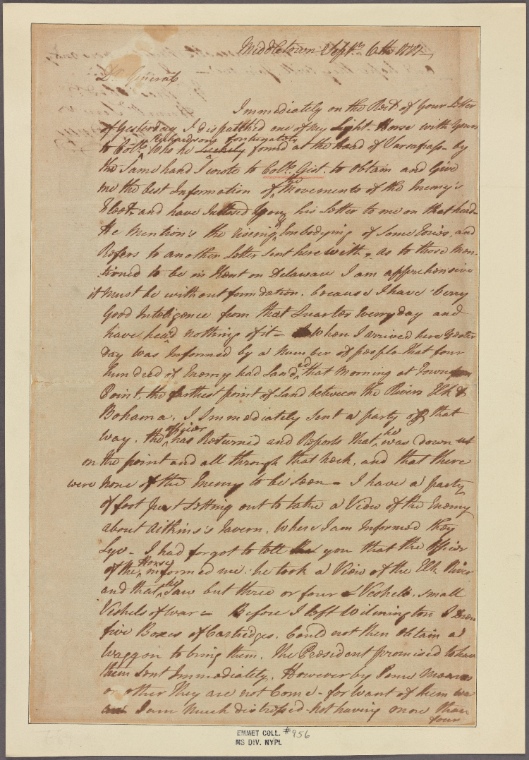 Middletown Septr. 6th 1777
Dr. General
Immediately on the Rect. of your letter
of yesterday I dispatched one of my Light Horse with yours
to Collo. Richardson who he fortunately found at the head of Sassafrass by
the Same hand I wrote to Collo. Gist to obtain and Give
me the best Information of Movements of the Enemy's
Fleet and have Inclosed you his letter to me on that head
He mention's the rising, Embodying of Some Tories, and
Refers to another Letter Sent here with, as to those men-
tioned to be in Kent on Delaware I am apprehensive
it must be without foundation, because I have very
Good Inteligence from that Quarter every day and
have heard nothing of it - When I arrived here yester
day was Informed by a number of people that four
hundred of Enemy had Landed that morning at Town
Point the farthest point of Land between the Rivers Elk &
Bohama. I Immediately Sent a party off that
way. the officer has Returned and Reports that he was down
on the point and all through that Neck, and that there
were None of the Enemy to be Seen - I have a party
of foot Just Setting out to take a View of the Enemy
about Aitkins's Tavern. Where I am Informed they
Lye - I had forgot to tell you that the officer
of the Horse informed me he took a View of the Elk River
and that he Saw but three or four Veshels. Small
Veshels of war - Before I left Wilmington
five Boxes of Cartridges. Could not then obtain a
waggon to bring them. The President promised to have
them Sent Immediately. However by Some Means
or other they are not Come - for want of them
I am Much distressed not having more than
four
EMMET COLL. #956
MS DIV. NYPL